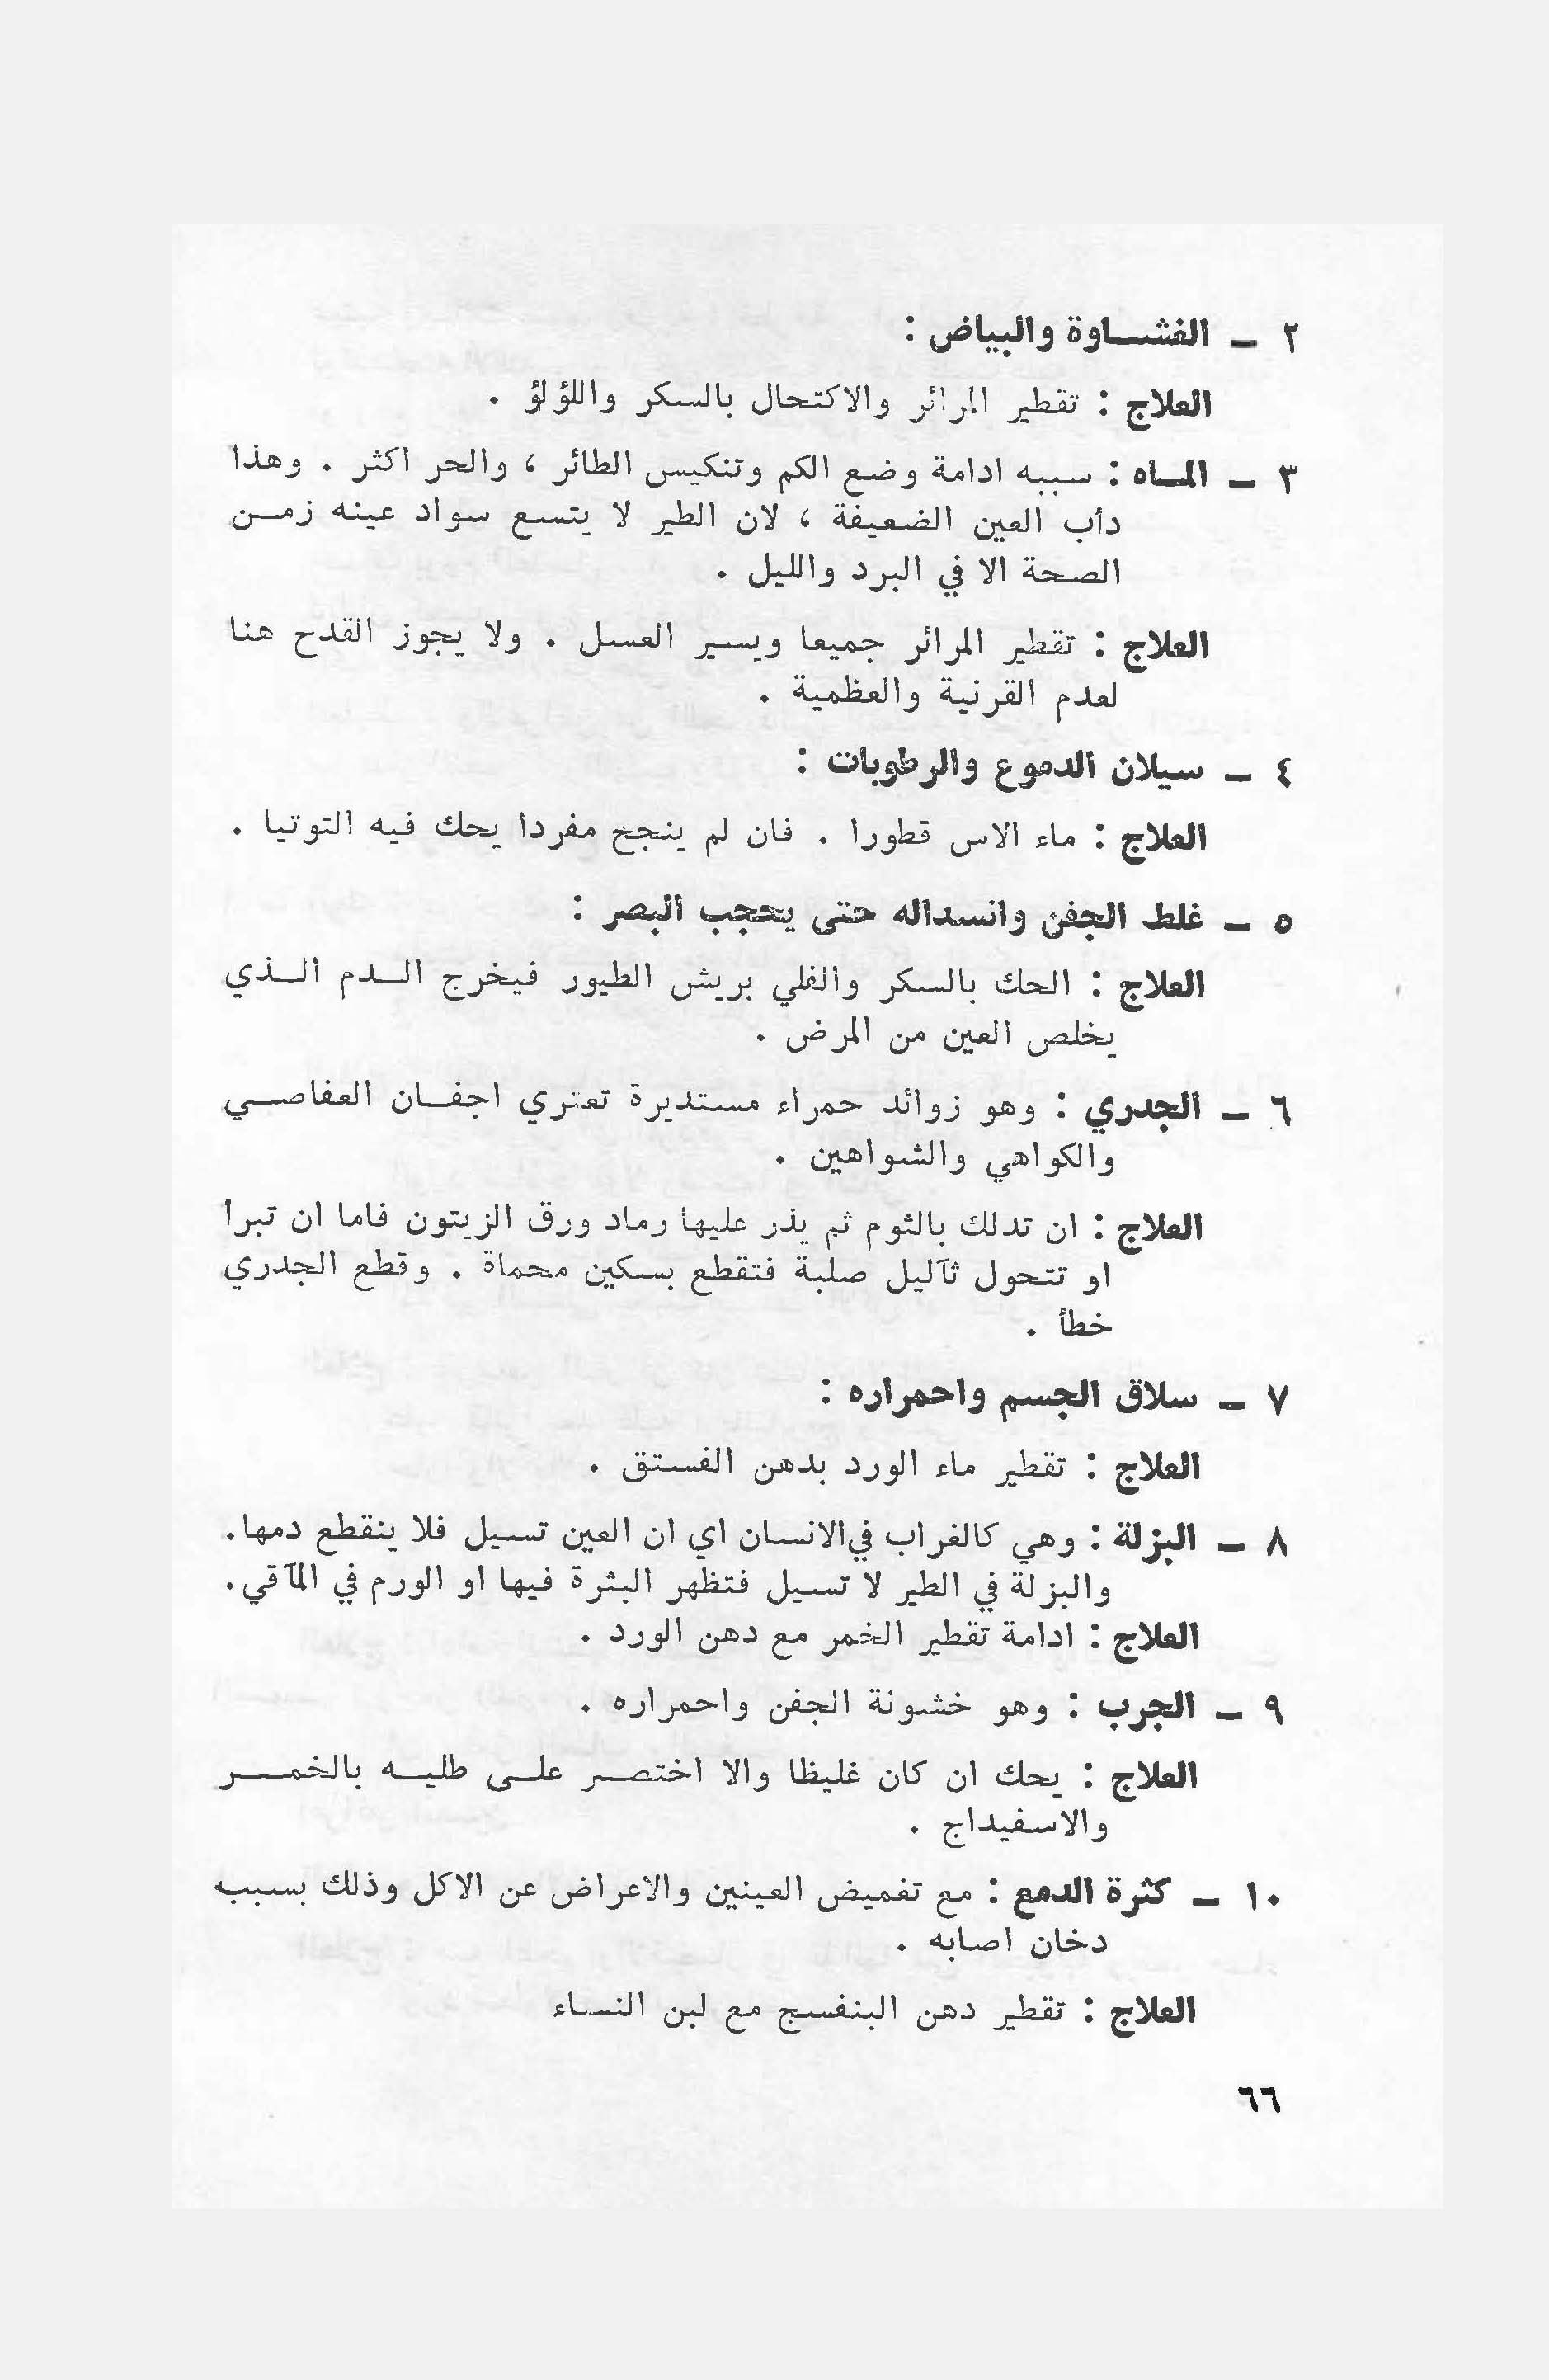 ٢ ــ الغشاوة والبياض :
العلاج : تقطير المرائر والاكتحال بالسكر واللؤلؤ .
٣ ــ الماه : سببه ادامة وضع الكم وتنكيس الطائر ، والحر اكثر . وهذا
دأب العين الضعيفة ، لان الطير لا يتسع سواد عينه زمن
الصحة الا في البرد والليل .
العلاج : تقطير المرائر جميعا ويسير العسل . ولا يجوز القدح هنا
لعدم القرنية والعظمية .
٤ ــ سيلان الدموع والرطوبات :
العلاج : ماء الاس قطورا . فان لم ينجح مفردا يحك فيه التوتيا .
٥ ــ غلط الجفن وانسداله حتى يحجب البصر :
العلاج : الحك بالسكر والفلي بريش الطيور فيخرج الدم الذي
يخلص العين من المرض .
٦ ــ الجدري : وهو زوائد حمراء مستديرة تعتري اجفان العفاصي
والكواهي والشواهين .
العلاج : ان تدلك بالثوم ثم يذر عليها رماد ورق الزيتون فاما ان تبرأ
او تتحول ثآليل صلبة فتقطع بسكين محماة . وقطع الجدري
خطأ .
٧ ــ سلاق الجسم واحمراره :
العلاج : تقطير ماء الورد بدهن الفستق .
٨ ــ البزلة : وهي كالغراب في الانسان اي ان العين تسيل فلا ينقطع دمها.
والبزلة في الطير لا تسيل فتظهر البثرة فيها او الورم في المآقي.
العلاج : ادامة تقطير الخمر مع دهن الورد .
٩ ــ الجرب : وهو خشونة الجفن واحمراره .
العلاج : يحك ان كان غليظا والا اختصر على طليه بالخمر
والاسفيداج .
١٠ ــ كثرة الدمع : مع تغميض العينين والاعراض عن الاكل وذلك بسبب
دخان اصابه .
العلاج : تقطير دهن البنفسج مع لبن النساء
٦٦